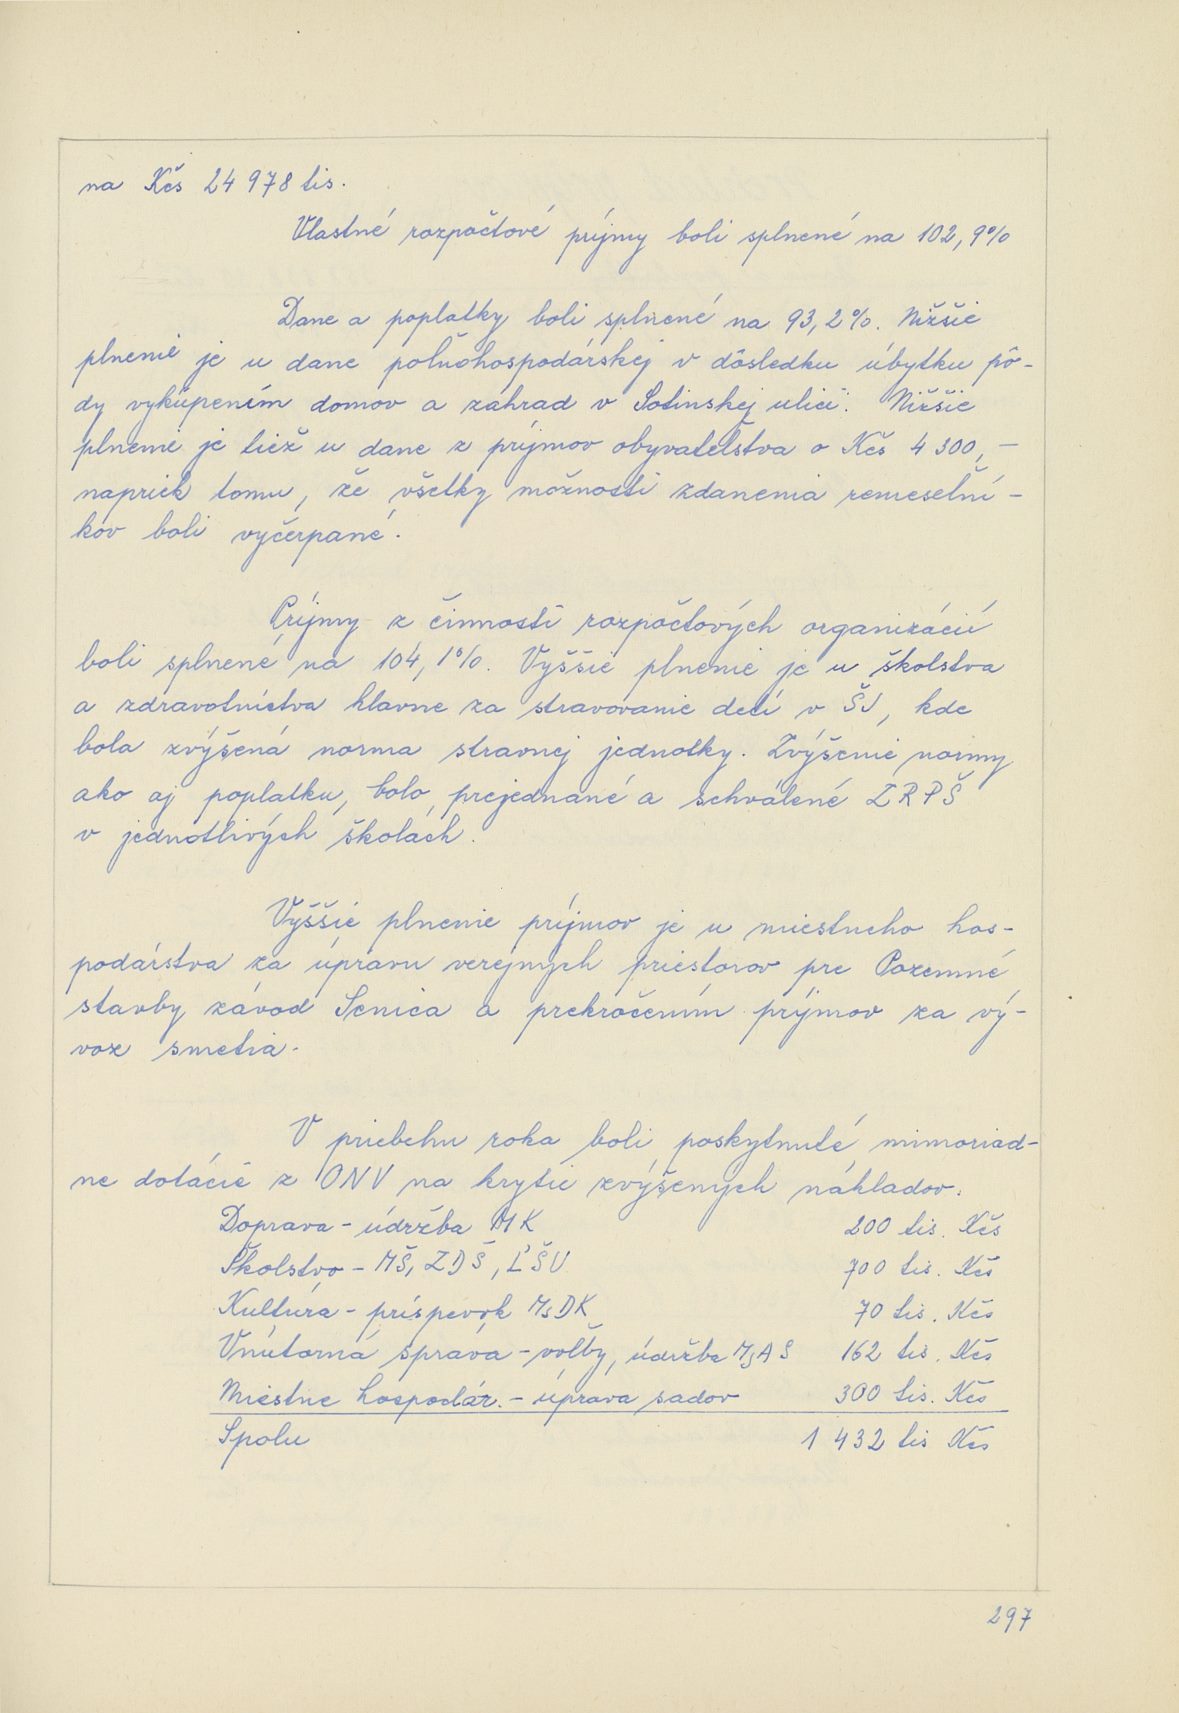 na Kčs 24 978 tis.
Vlastné rozpočtové príjmy boli splnené na 102,9%
Dane a poplatky boli splnené na 93,2%. Nižšie
plnenie je u dane poľnohospodárskej v dôsledku úbytku pô-
dy vykúpením domov a záhrad v Sotinskej ulici. Nižšie
plnenie je tiež u dane z príjmov obyvateľstva o Kčs 4 300,-
napriek tomu, že všetky možnosti zdanenia remeselní-
kov boli vyčerpané.
Príjmy z činnosti rozpočtových organizácií
boli splnené na 104,1%. Vyššie plnenie je u školstva
a zdravotníctva hlavne za stravovanie detí v ŠJ, kde
bola zvýšená norma stravnej jednotky. Zvýšenie normy
ako aj poplatku, bolo prejednané a schválené ZRPŠ
v jednotlivých školách.
Vyššie plnenie príjmov je u miestneho hos-
podárstva za úpravu verejných priestorov pre Pozemné
stavby závod Senica a prekročením príjmov za vý-
voz smetia.
V priebehu roka boli poskytnuté mimoriad-
ne dotácie z ONV na krytie zvýšených nákladov.
Doprava - údržba MK 200 tis. Kčs
Školstvo - MŠ, ZDŠ, ĽŠU 700 tis. Kčs
Kultúra - príspevok MsDK 70 tis. Kčs
Vnútorná správa - voľby, údržba MsAS 162 tis. Kčs
Miestne hospodár. - úprava sadov 300 tis. Kčs
Spolu 1 432 tis Kčs
297